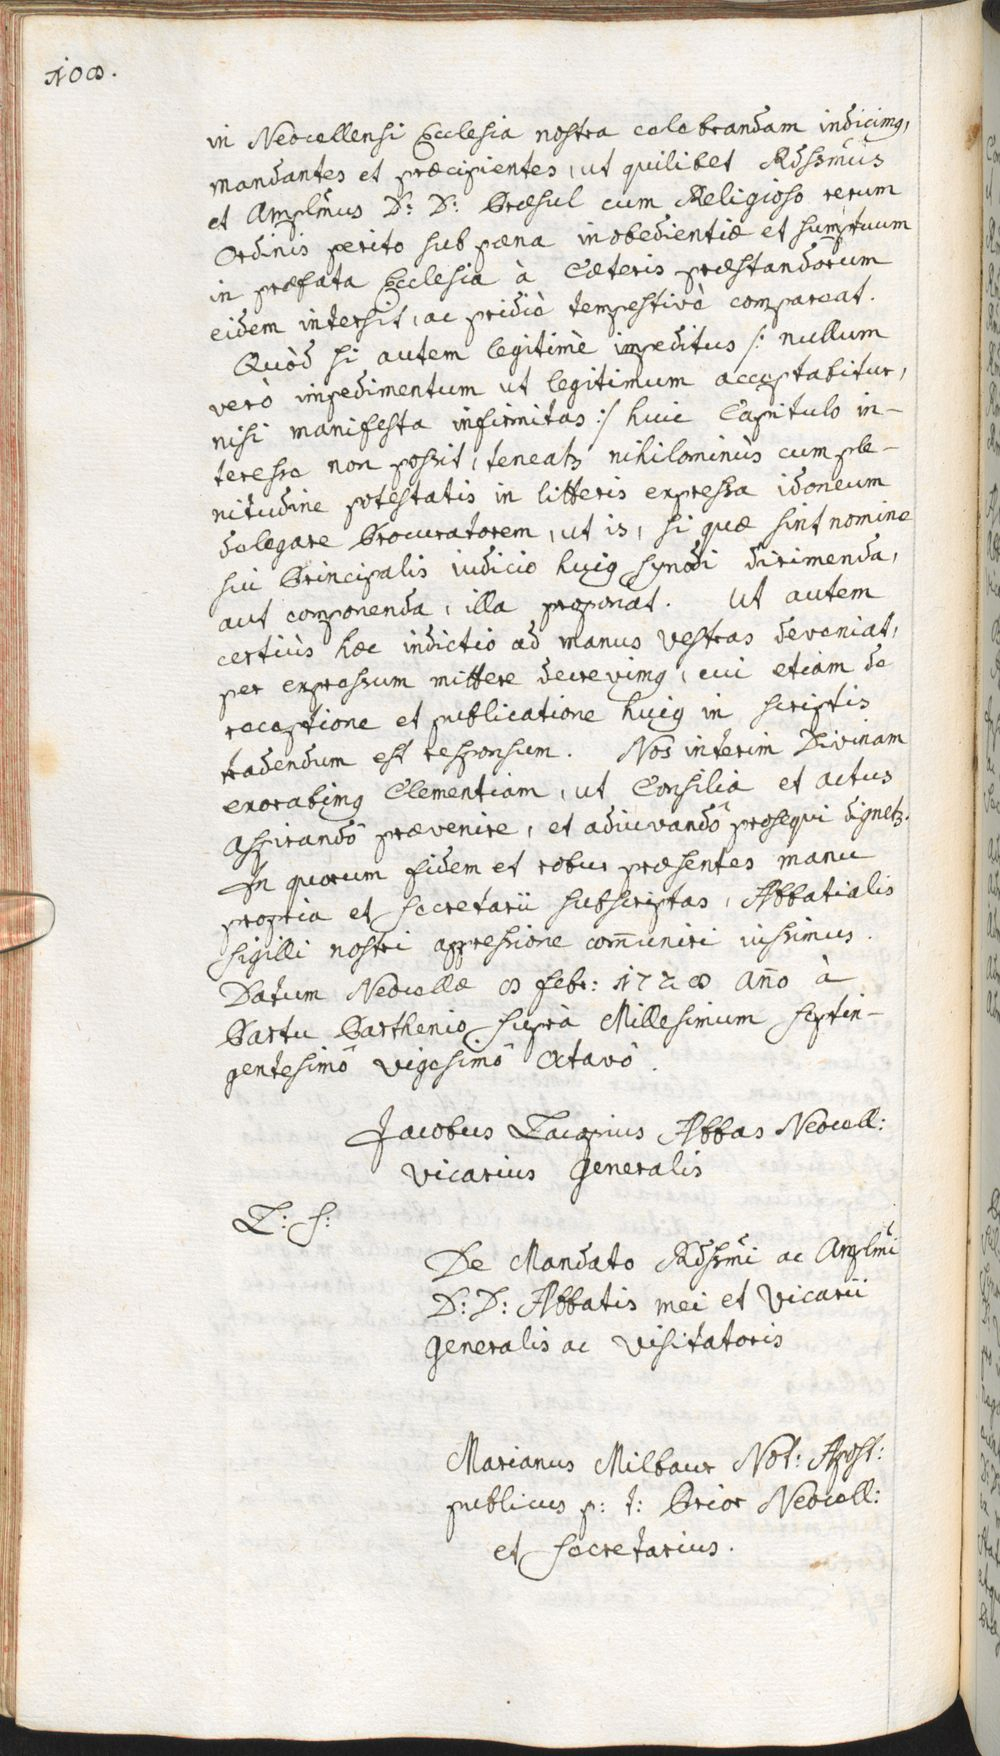 108.
in Neocellensi Ecclesia nostra celebrandam indicimꝰ,
mandantes et præcipientes, ut quilibet Rdssimus
et Amplmus D: D: Præsul cum Religioso rerum
Ordinis perito sub pæna inobedientiæ et sumptuum
in præfata Ecclesia à Cæteris præstandorum
eidem intersit, ac pridiè tempestivè compareat.
Quòd si autem legitimè impeditus /: nullum
verò impedimentum ut legitimum acceptabitur,
nisi manifesta infirmitas :/ huic Capitulo in-
teresse non possit, teneatꝫ nihilominùs cum ple-
nitudine potestatis in litteris expressa idoneum
delegare Procuratorem, ut is, si quæ sint nomine
sui Principalis iudicio huiꝰ synodi dirimenda,
aut componenda, illa proponat. Ut autem
certiùs hæc indictio ad manus vestras deveniat,
per expressum mittere decrevimꝰ, cui etiam de
receptione et publicatione huiꝰ in scriptis
tradendum est responsum. Nos interim Divinam
exorabimꝰ Clementiam, ut Consilia et actus
aspirandô prævenire, et adiuvandô prosequi dignetꝫ.
In quorum fidem et robur præsentes manu
propria et secretarii subscriptas, Abbatialis
sigilli nostri appressione com̄uniri iussimus.
Datum Neocellæ 8 febr: 1728 an̄o à
Partu Parthenio suprà Millesimum septin-
gentesimô vigesimô octavô.
Jacobus Abbas Neocell:
vicarius generalis
L: S:
De Mandato Rdssmi ac Amplmi
D: D: Abbatis mei et vicarii
generalis ac visitatoris
Marianus Milbaur Not: Apost:
publicus p: t: Prior Neocell:
et secretarius.